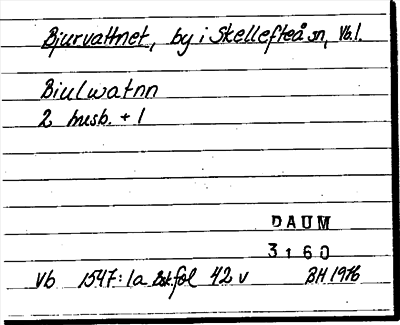 Bjurvattnet, by i Skellefteå sn, Vb l.
Biulwatnn
2 husb. + 1
DAUM
3160
Vb 1547:1a Bst. fol 42 v BH 1976